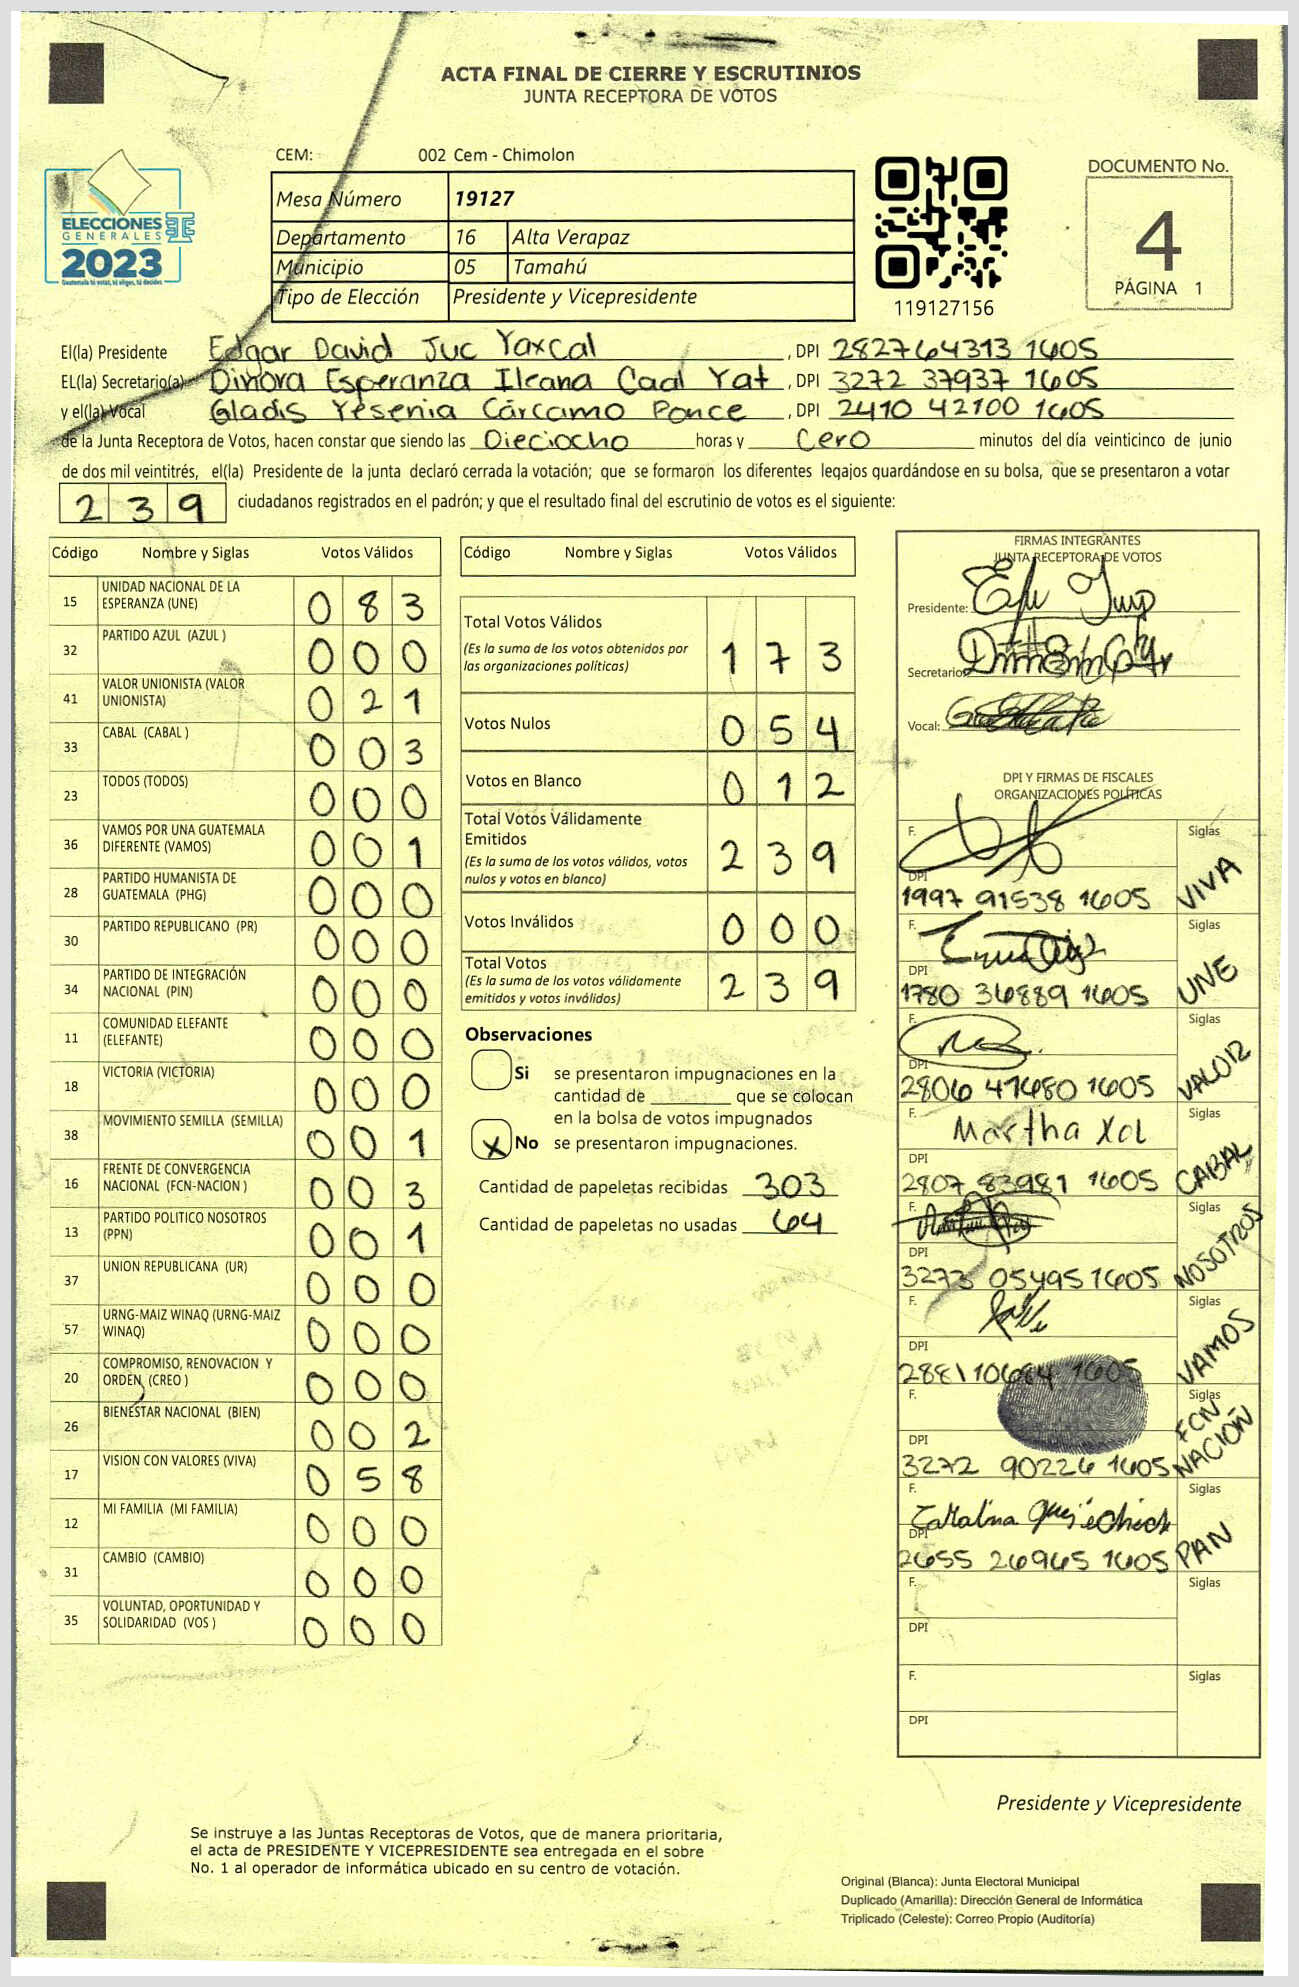 ACTA FINAL DE CIERRE Y ESCRUTINIOS
JUNTA RECEPTORA DE VOTOS
CEM: 002 Cem - Chimolon
DOCUMENTO No.
4
PÁGINA 1
ELECCIONES
GENERALES
2023
Guatemala tú votas, tú eliges, tú decides
Mesa Número 19127
Departamento 16 Alta Verapaz
Municipio 05 Tamahú
Tipo de Elección Presidente y Vicepresidente
119127156
El(la) Presidente Edgar David Juc Yaxcal, DPI 282764313 1605
EL(la) Secretario(a) Dinora Esperanza Ileana Caal Yat, DPI 3272 37937 1605
y el(la) Vocal Gladis Yesenia Cárcamo Ponce, DPI 2410 42100 1605
de la Junta Receptora de Votos, hacen constar que siendo las Dieciocho horas y Cero minutos del día veinticinco de junio
de dos mil veintitrés, el(la) Presidente de la junta declaró cerrada la votación; que se formaron los diferentes legajos guardándose en su bolsa, que se presentaron a votar
239 ciudadanos registrados en el padrón; y que el resultado final del escrutinio de votos es el siguiente:
Código Nombre y Siglas Votos Válidos
15 UNIDAD NACIONAL DE LA ESPERANZA (UNE) 083
32 PARTIDO AZUL (AZUL ) 000
41 VALOR UNIONISTA (VALOR UNIONISTA) 021
33 CABAL (CABAL ) 003
23 TODOS (TODOS) 000
36 VAMOS POR UNA GUATEMALA DIFERENTE (VAMOS) 001
28 PARTIDO HUMANISTA DE GUATEMALA (PHG) 000
30 PARTIDO REPUBLICANO (PR) 000
34 PARTIDO DE INTEGRACIÓN NACIONAL (PIN) 000
11 COMUNIDAD ELEFANTE (ELEFANTE) 000
18 VICTORIA (VICTORIA) 000
38 MOVIMIENTO SEMILLA (SEMILLA) 001
16 FRENTE DE CONVERGENCIA NACIONAL (FCN-NACION ) 003
13 PARTIDO POLITICO NOSOTROS (PPN) 001
37 UNION REPUBLICANA (UR) 000
57 URNG-MAIZ WINAQ (URNG-MAIZ WINAQ) 000
20 COMPROMISO, RENOVACION Y ORDEN (CREO ) 000
26 BIENESTAR NACIONAL (BIEN) 002
17 VISION CON VALORES (VIVA) 058
12 MI FAMILIA (MI FAMILIA) 000
31 CAMBIO (CAMBIO) 000
35 VOLUNTAD, OPORTUNIDAD Y SOLIDARIDAD (VOS ) 000
Código Nombre y Siglas Votos Válidos
Total Votos Válidos 173
(Es la suma de los votos obtenidos por
las organizaciones políticas)
Votos Nulos 054
Votos en Blanco 012
Total Votos Válidamente
Emitidos 239
(Es la suma de los votos válidos, votos
nulos y votos en blanco)
Votos Inválidos 000
Total Votos 239
(Es la suma de los votos válidamente
emitidos y votos inválidos)
Observaciones
Si se presentaron impugnaciones en la
cantidad de ________ que se colocan
en la bolsa de votos impugnados
X No se presentaron impugnaciones.
Cantidad de papeletas recibidas 303
Cantidad de papeletas no usadas 64
FIRMAS INTEGRANTES
JUNTA RECEPTORA DE VOTOS
Presidente:
Secretario:
Vocal:
DPI Y FIRMAS DE FISCALES
ORGANIZACIONES POLÍTICAS
F. Siglas
DPI 1997 91538 1605 VIVA
F. Siglas
DPI 1780 36889 1605 UNE
F. Siglas
DPI 2806 47680 1605 VALOR
F. Martha Xol Siglas
DPI 2807 83981 1605 CABAL
F. Siglas
DPI 3273 05495 1605 NOSOTROS
F. Siglas
DPI 2881 10684 1605 VAMOS
F. Siglas
DPI 3272 90226 1605 FCN NACIÓN
F. Catalina Siglas
DPI 2655 26965 1605 PAN
F. Siglas
DPI
F. Siglas
DPI
Presidente y Vicepresidente
Se instruye a las Juntas Receptoras de Votos, que de manera prioritaria,
el acta de PRESIDENTE Y VICEPRESIDENTE sea entregada en el sobre
No. 1 al operador de informática ubicado en su centro de votación.
Original (Blanca): Junta Electoral Municipal
Duplicado (Amarilla): Dirección General de Informática
Triplicado (Celeste): Correo Propio (Auditoría)